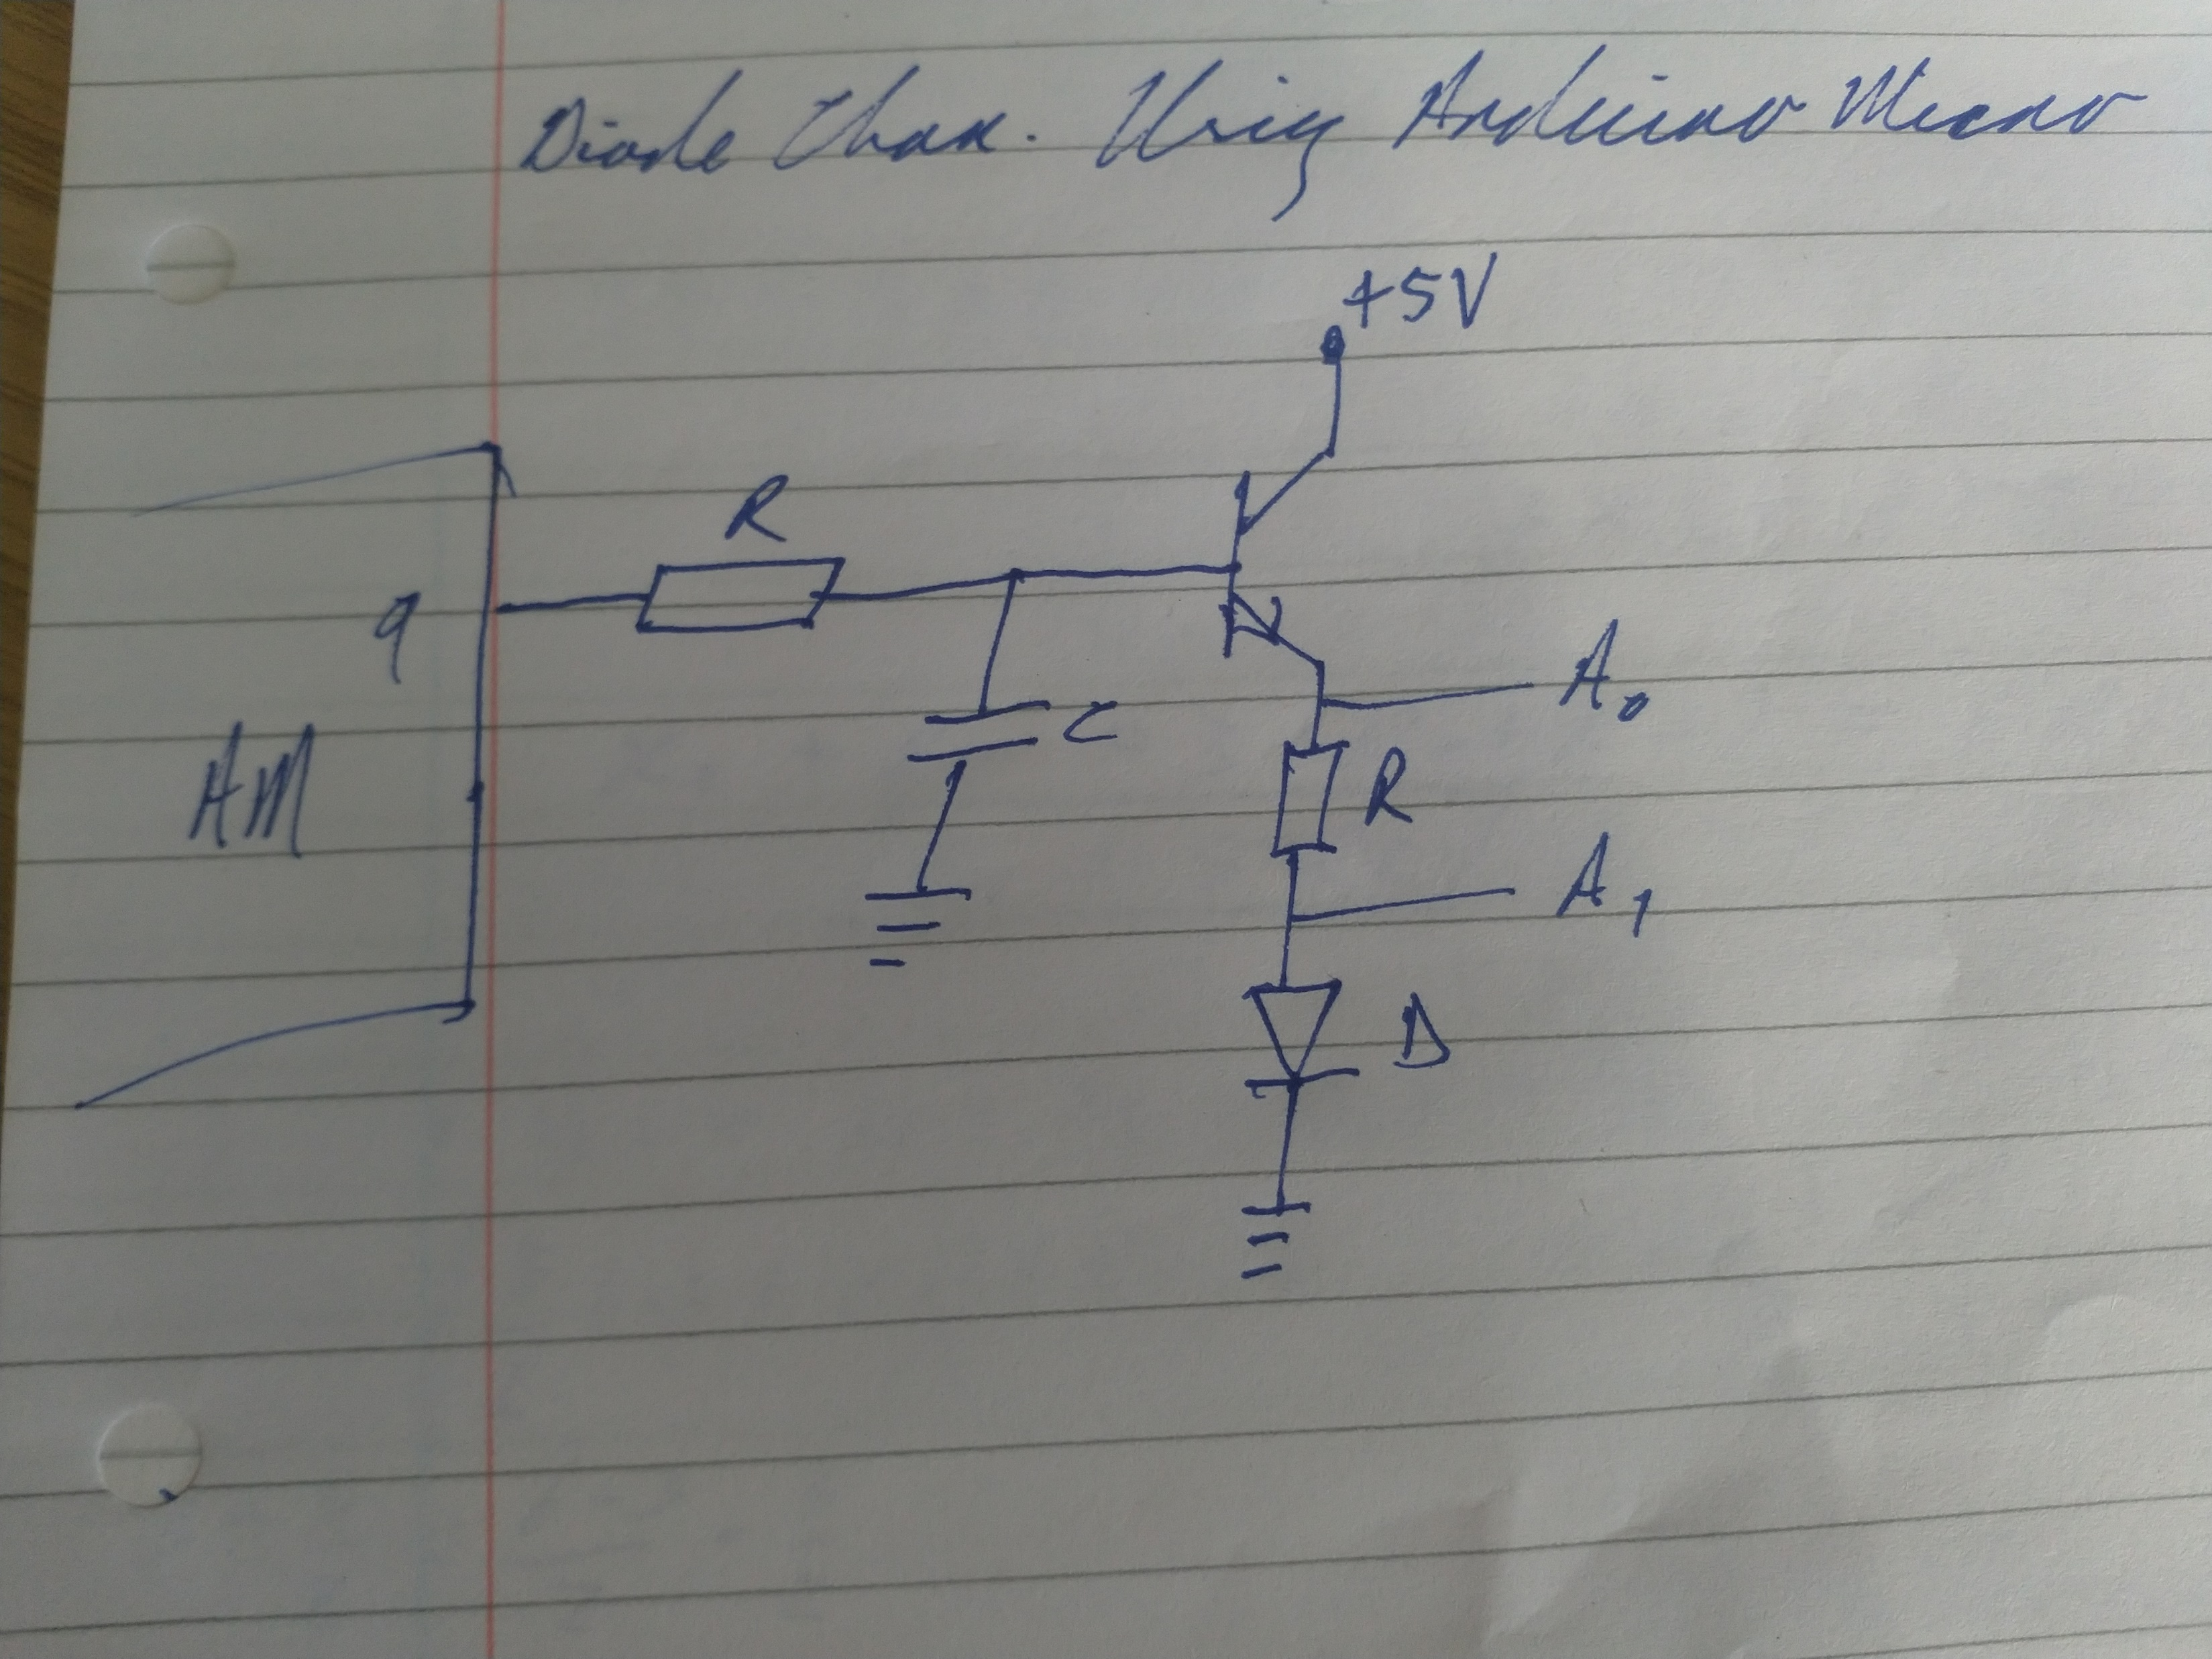 Diode Char. Using Arduino Micro
+5V
R
9
A0
C
AM
R
A1
D